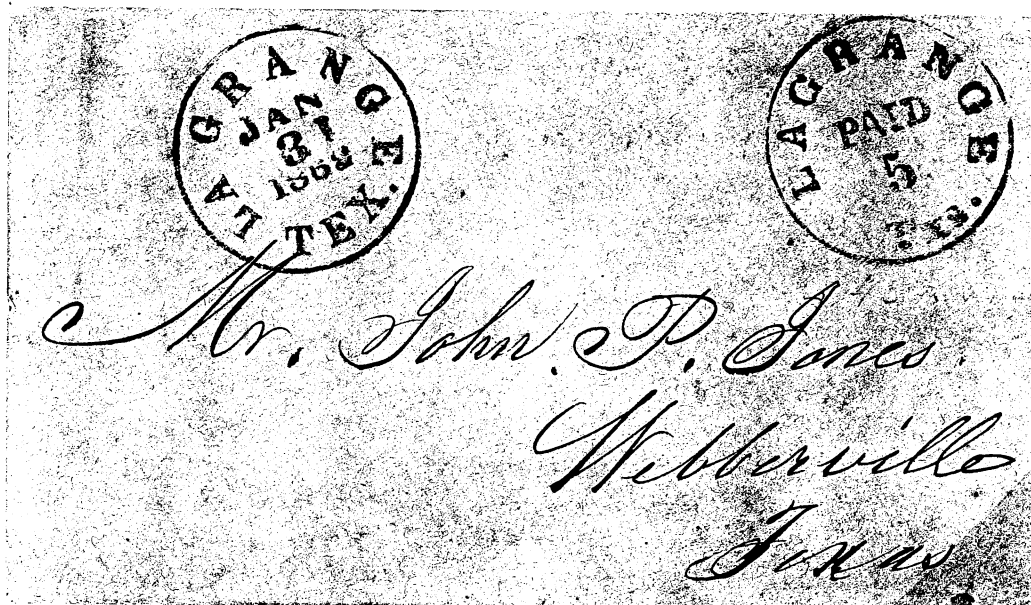 LA GRANGE
JAN
31
1862
TEX.
LAGRANGE
PAID
5
Tex.
Mr. John P. Jones.
Webberville
Texas